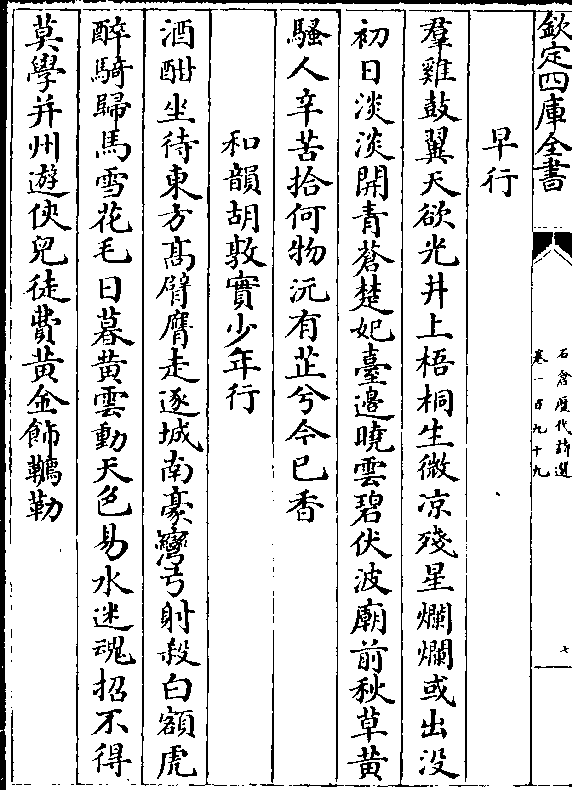 欽定四庫全書
石倉歷代詩選
卷一百九十九
七
早行
羣雞鼓翼天欲光井上梧桐生微凉殘星爛爛或出没
初日淡淡開青蒼楚妃臺邊曉雲碧伏波廟前秋草黄
騷人辛苦拾何物沅有芷兮今已香
和韻胡敦實少年行
酒酣坐待東方髙臂鷹走逐城南豪彎弓射殺白額虎
醉騎歸馬雪花毛日暮黄雲動天色易水迷魂招不得
莫學并州遊俠兒徒費黄金飾鞿勒